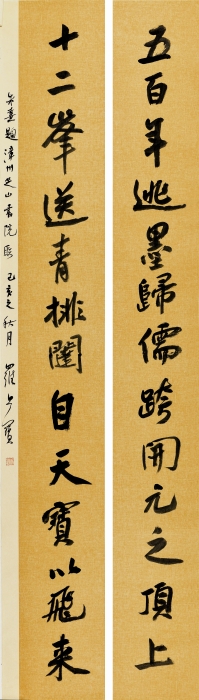 五百年逃墨歸儒跨開元之頂上
十二峯送青排闥自天寶以飛来
朱熹題漳州芝山書院聯 己亥之秋月 羅